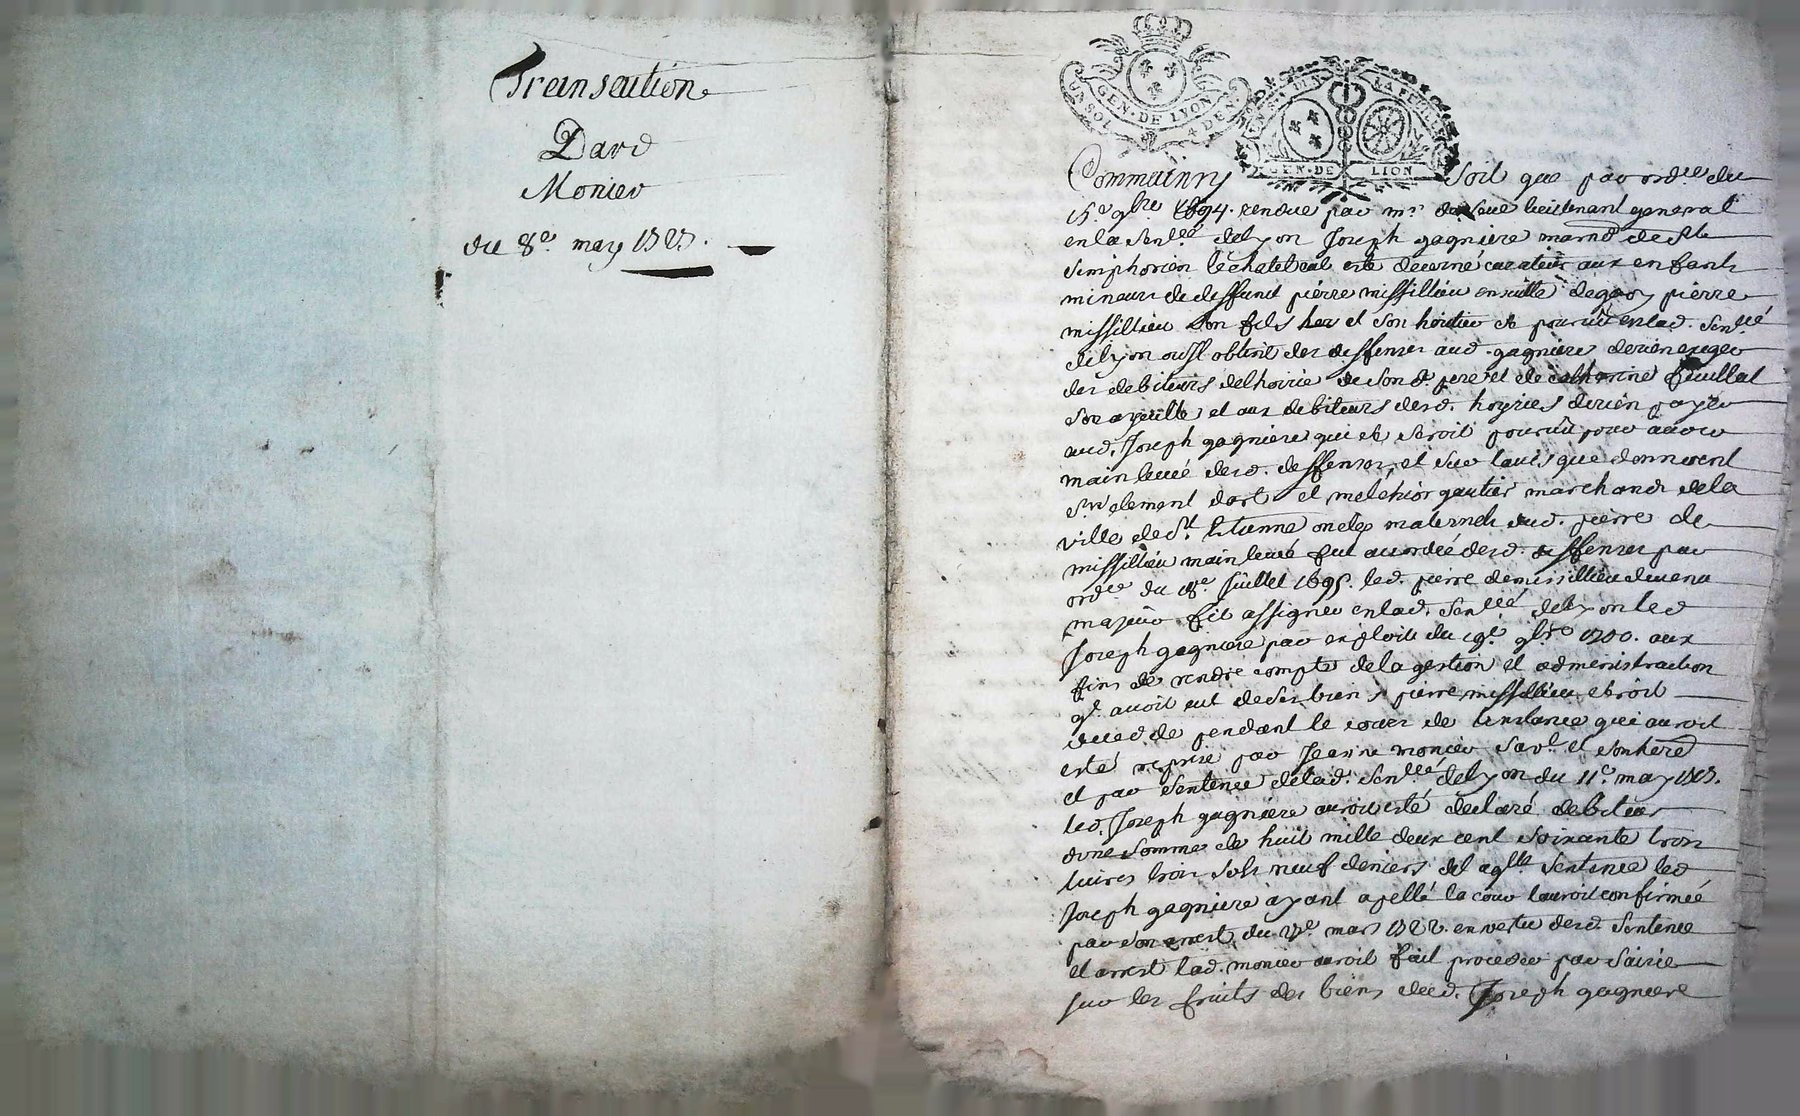 Transaction
Dard
Monier
du 8e. may 1727.
GEN. DE LYON
UN SOL 4 DEN
GEN. DE LION
Comme ainsy soit que par ordce du
15.e 9bre 1694. rendue par mr. de seve lieutenant general
en la senllée de Lyon Joseph gagniere marnd de St
Simphorien le chatel eut esté decerné curateur aux enfants
mineurs de deffunt pierre missillieu ensuitte de quoy pierre
missillieu son fils et son heritier pourvu en lad. senllée
de lyon ou Il obtint des deffenses aud. gagniere de rien exiger
des debiteurs delhoirie de son d. pere et de catherine feuillat
son ayeulle et aux debiteurs desd. hoyries de rien payer
aud. Joseph gagniere qui se seroit pourvu pour avoir
main levée desd. deffenses, et sur lavis que donnerent
srs. clement dard et melchior gautier marchands de la
ville de St. Etienne oncles maternels dud. pierre de
missillieu main levée fut accordée desd. deffenses par
ordce du 18e. Juillet 1695. led. pierre de missillieu devenu
majeur fit assigner en lad. senllée de lyon led
Joseph gagniere par exploit du 19e. 9bre 1700. aux
fins de rendre compte de la gestion et administration
ql. avoit eut de ses biens, pierre missillieu etoit
decedé pendant le cours de linstance qui auroit
esté reprise par Jeanne monier sa vl. et son here
et par sentence de lad. senllée de Lyon du 11e. may 1715.
led. Joseph gagniere auroit esté declaré debiteur
dune somme de huit mille deux cent soixante trois
livres trois sols neuf deniers de laqlle sentence led
Joseph gagniere ayant apellé la cour lauroit confirmée
par son arrest du mars 1722. en vertu desd. sentence
et arrest lad. monier auroit fait proceder par saisie
sur les fruits des biens dud. Joseph gagniere